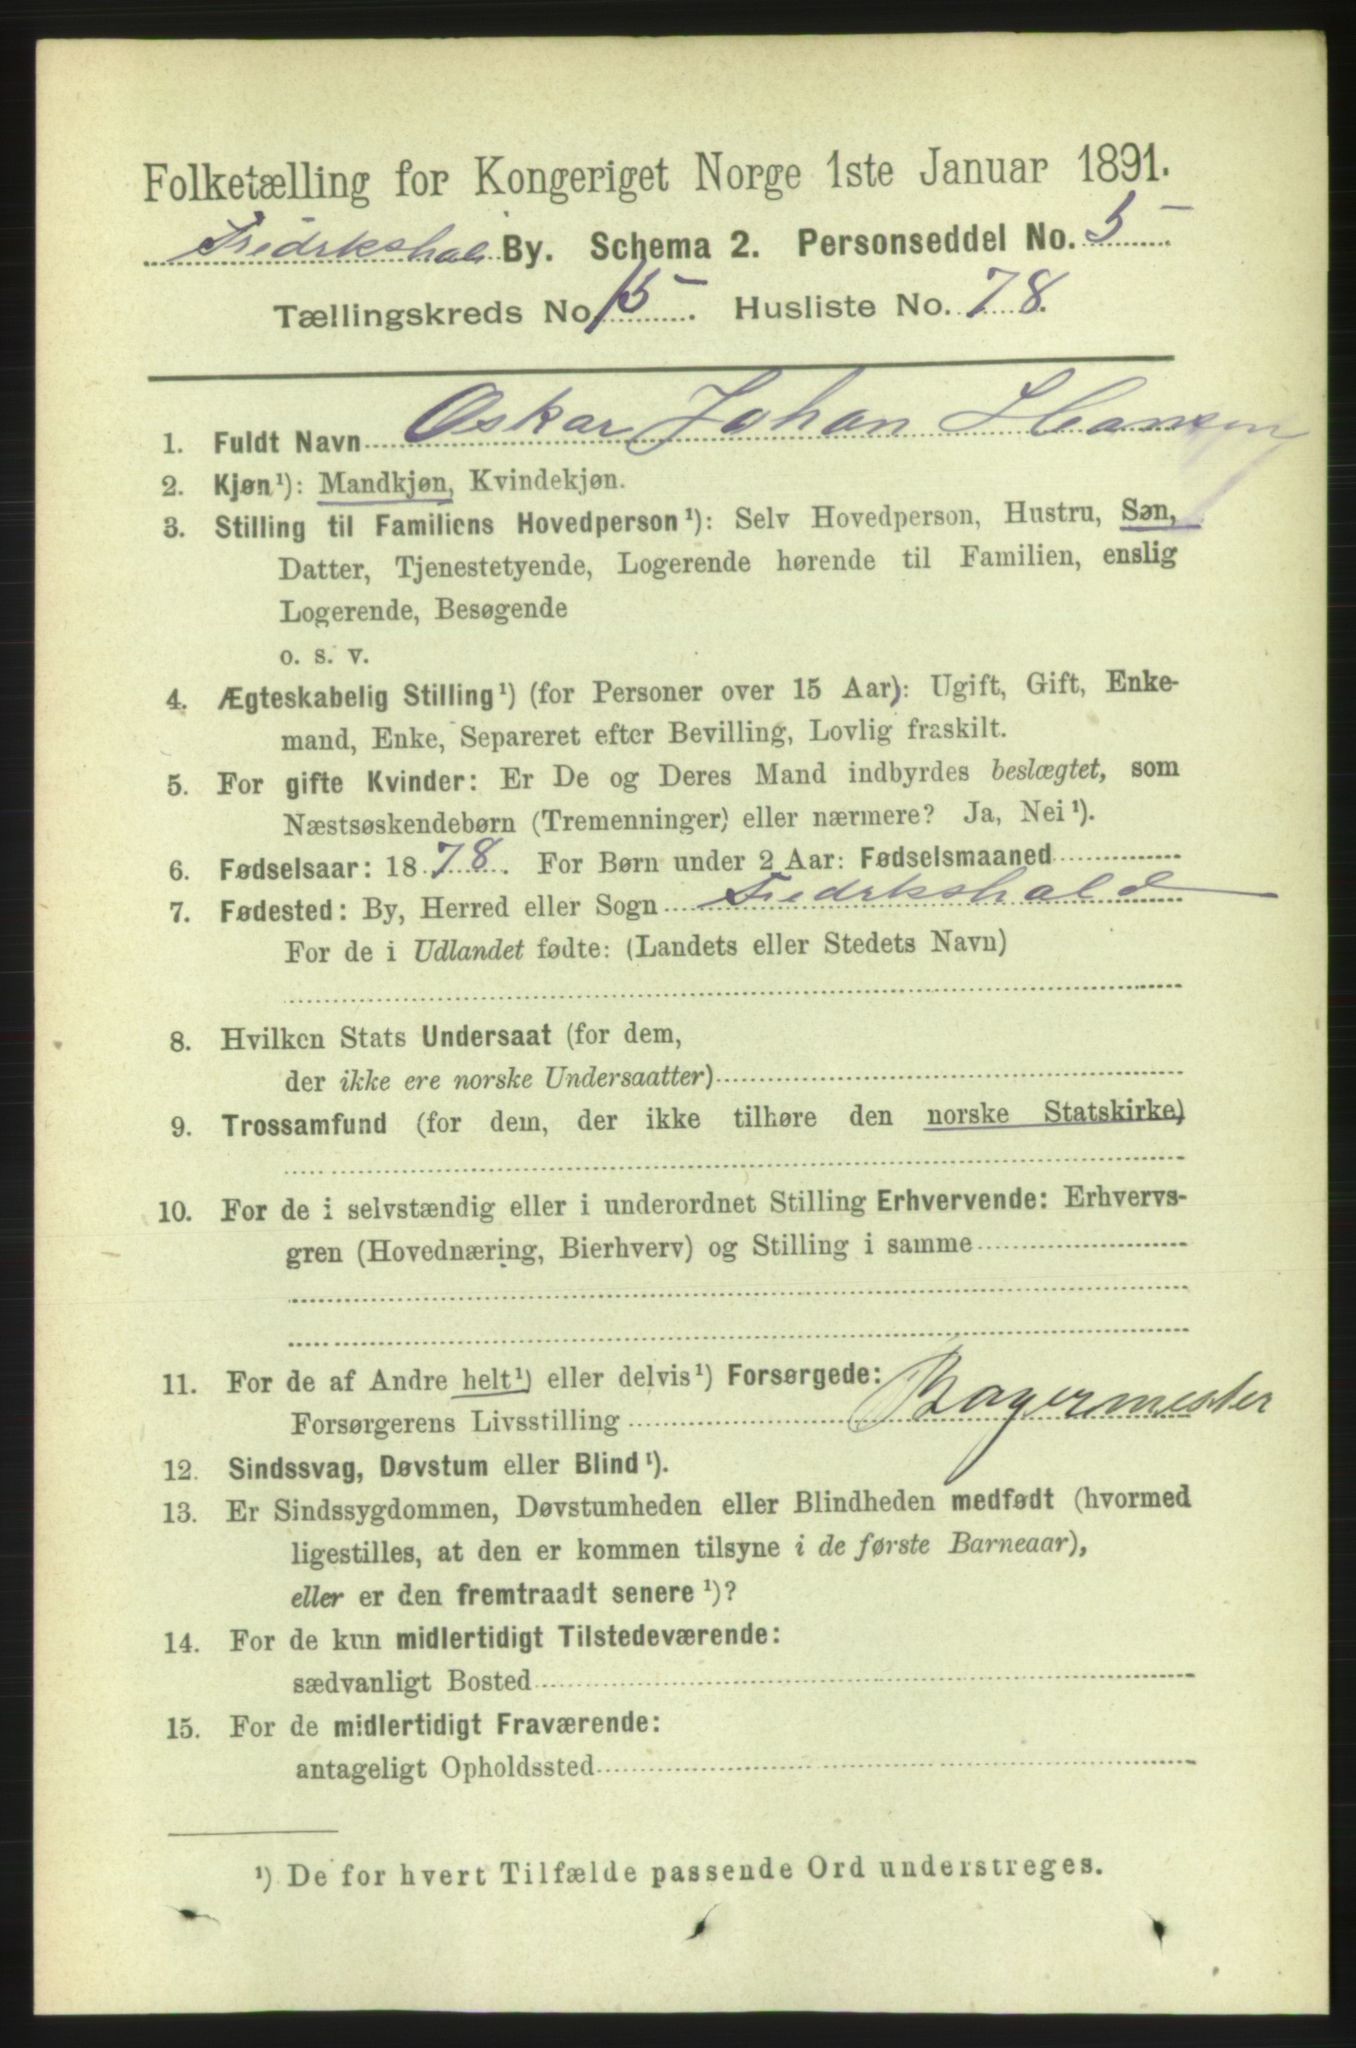 Folketælling for Kongeriget Norge 1ste Januar 1891.
Fredrkshald By. Schema 2. Personseddel No. 5
Tællingskreds No. 15. Husliste No. 78.
1. Fuldt Navn Oskar Johan Hansen
2. Kjøn¹): Mandkjøn, Kvindekjøn.
3. Stilling til Familiens Hovedperson¹): Selv Hovedperson, Hustru, Søn,
Datter, Tjenestetyende, Logerende hørende til Familien, enslig
Logerende, Besøgende
o. s. v.
4. Ægteskabelig Stilling¹) (for Personer over 15 Aar): Ugift, Gift, Enke-
mand, Enke, Separeret efter Bevilling, Lovlig fraskilt.
5. For gifte Kvinder: Er De og Deres Mand indbyrdes beslægtet, som
Næstsøskendebørn (Tremenninger) eller nærmere? Ja, Nei¹).
6. Fødselsaar: 1878. For Børn under 2 Aar: Fødselsmaaned
7. Fødested: By, Herred eller Sogn Fredrkshald
For de i Udlandet fødte: (Landets eller Stedets Navn)
8. Hvilken Stats Undersaat (for dem,
der ikke ere norske Undersaatter)
9. Trossamfund (for dem, der ikke tilhøre den norske Statskirke)
10. For de i selvstændig eller i underordnet Stilling Erhvervende: Erhvervs-
gren (Hovednæring, Bierhverv) og Stilling i samme
11. For de af Andre helt¹) eller delvis¹) Forsørgede:
Forsørgerens Livsstilling Bagermester
12. Sindssvag, Døvstum eller Blind¹).
13. Er Sindssygdommen, Døvstumheden eller Blindheden medfødt (hvormed
ligestilles, at den er kommen tilsyne i de første Barneaar),
eller er den fremtraadt senere¹)?
14. For de kun midlertidigt Tilstedeværende:
sædvanligt Bosted
15. For de midlertidigt Fraværende:
antageligt Opholdssted
¹) De for hvert Tilfælde passende Ord understreges.